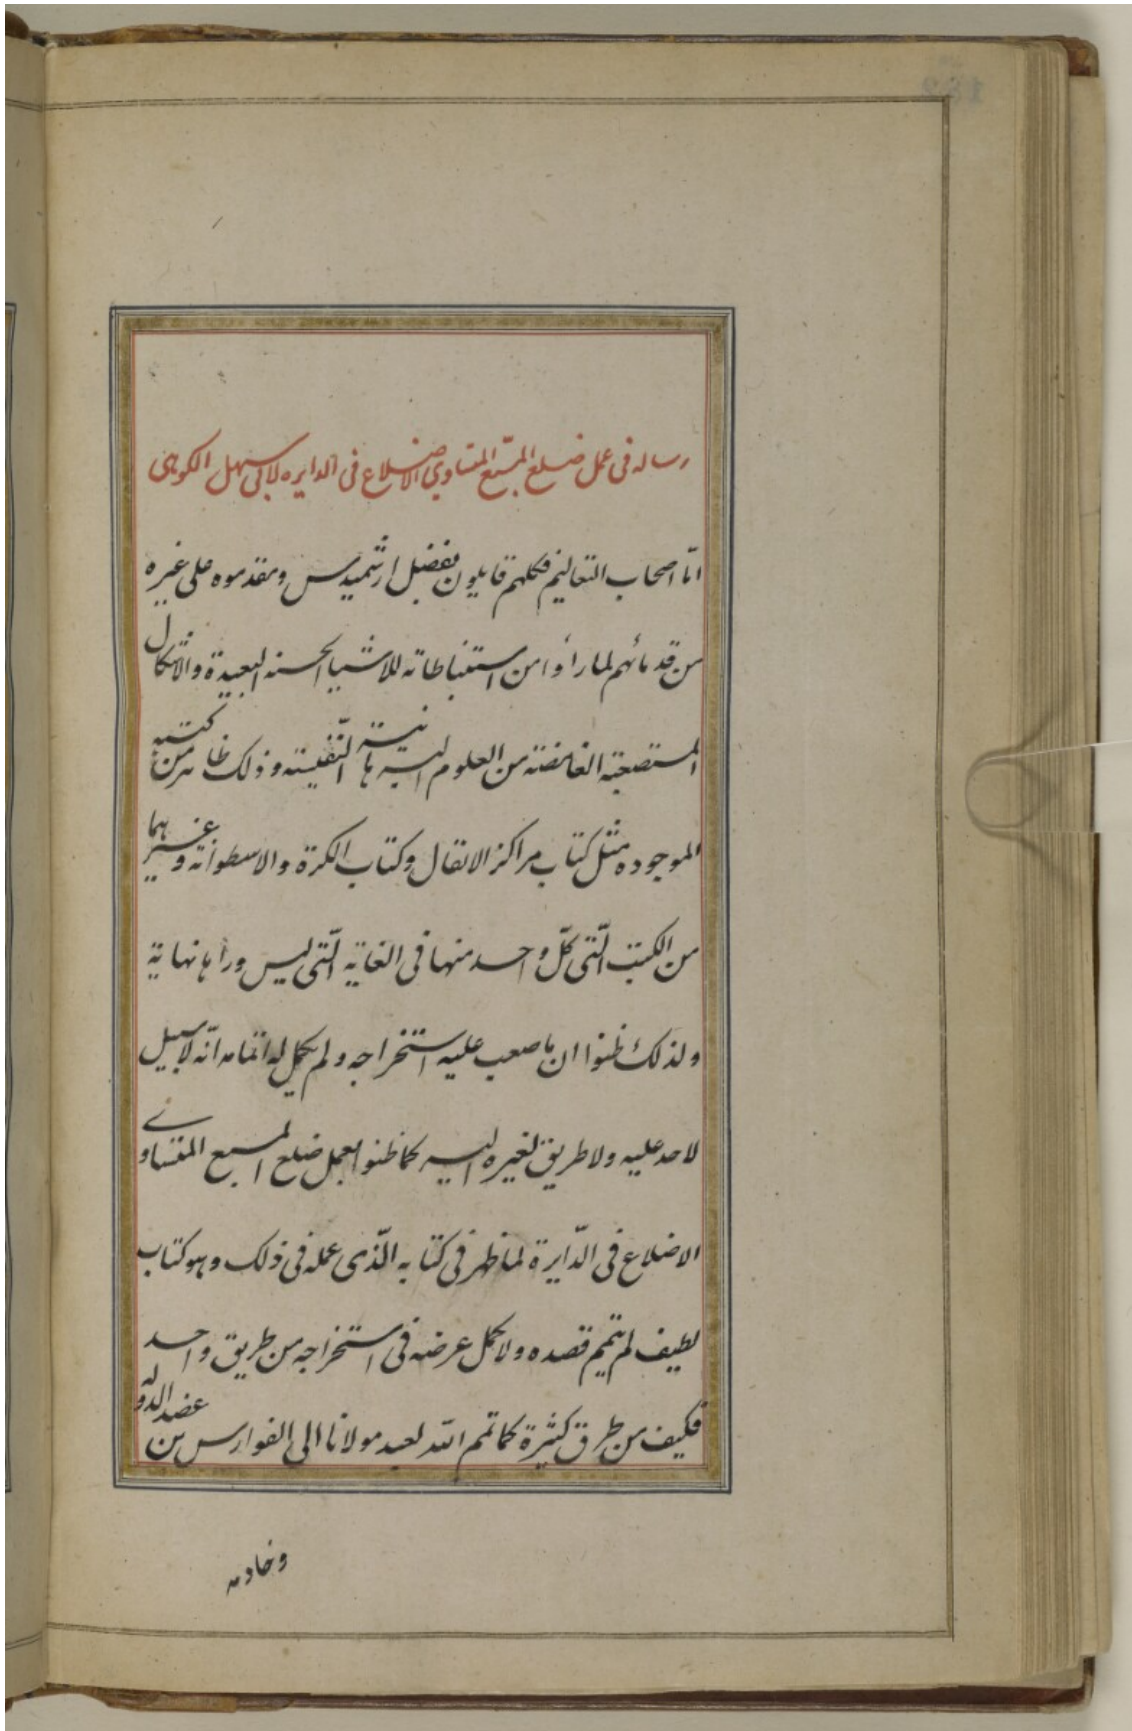 رساله فی عمل ضلع المسبّع المتساوی الاضلاع فی الدایره لابی سهل الکوهی
امّا اصحاب التعالیم فکلهم قایلون بفضل ارشمیدس ومقدموه علی غیره
من قدمائهم لما رأوا من استنباطاته للاشیا الحسنه البعیدة والاشکال
المستصعبة الغامضة من العلوم البرهانیة النّفیسة وذلک ظاهر من کتبه
الموجوده مثل کتاب مراکز الاثقال وکتاب الکرة والاسطوانة وغیرهما
من الکتب الّتی کلّ واحد منها فی الغایة الّتی لیس وراها نهایة
ولذلک ظنوا ان ما صعب علیه استخراجه ولم یکمل له اتمامه انّه لا سبیل
لاحد علیه ولا طریق لغیره الیه کما ظنوا بعمل ضلع المسبع المتساوی
الاضلاع فی الدّایرة لما ظهر فی کتابه الّذی عمله فی ذلک وهو کتاب
لطیف لم یتمیم قصده ولا کمل عرضه فی استخراجه من طریق واحد
فکیف من طرق کثیرة کما تمم الله لعبد مولانا ابی الفوارس بن عضد الدوله
وخادمه